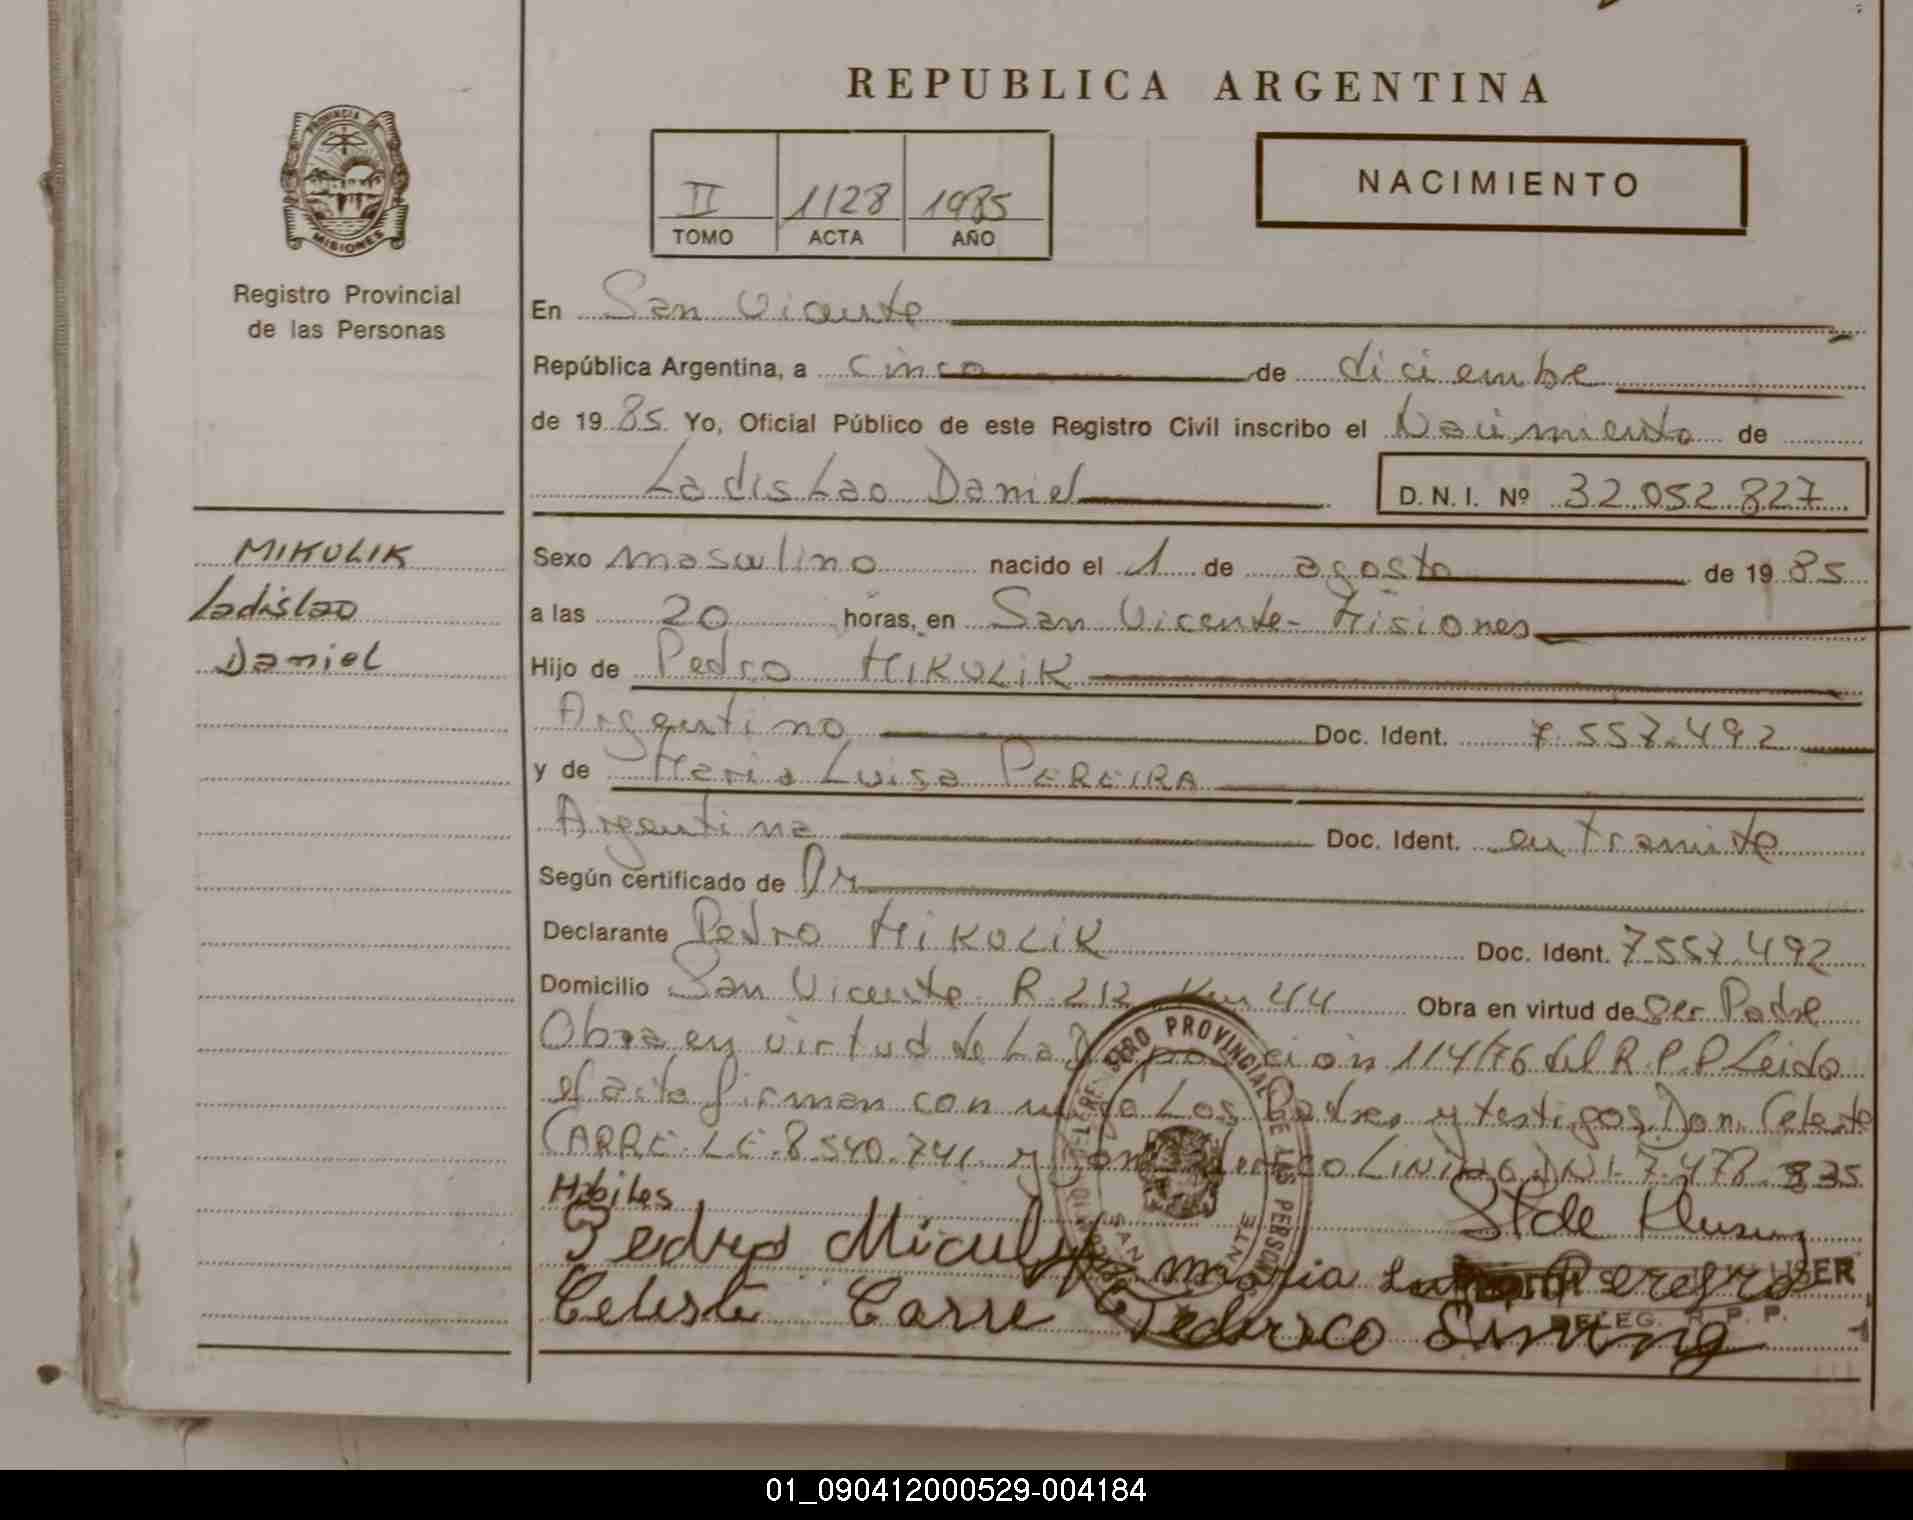 REPUBLICA ARGENTINA
PROVINCIA DE
MISIONES
Registro Provincial
de las Personas
II 1128 1985
TOMO ACTA AÑO
NACIMIENTO
En San Vicente
República Argentina, a cinco de diciembre
de 1985 Yo, Oficial Público de este Registro Civil inscribo el Nacimiento de
Ladislao Daniel D.N.I. Nº 32.052.827
MIKULIK
Ladislao
Daniel
Sexo masculino nacido el 1 de agosto de 1985
a las 20 horas, en San Vicente - Misiones
Hijo de Pedro MIKULIK
Argentino Doc. Ident. 7.557.492
y de Maria Luisa PEREIRA
Argentina Doc. Ident. en tramite
Según certificado de
Declarante Pedro MIKULIK Doc. Ident. 7.557.492
Domicilio San Vicente R. 212 Km 44 Obra en virtud de ser Padre
Obra en virtud de La Disposición 114/76 del R.P.P Leido
el acta firman con migo Los Padres y testigos Don Celeste
CARRE L.E. 8.540.741 y Don DNI 7.478.835
Habiles
Pedro
maria
Celeste Carre Federico
DELEG. R. P. P.
REGISTRO PROVINCIAL DE LAS PERSONAS
SAN VICENTE
01_090412000529-004184